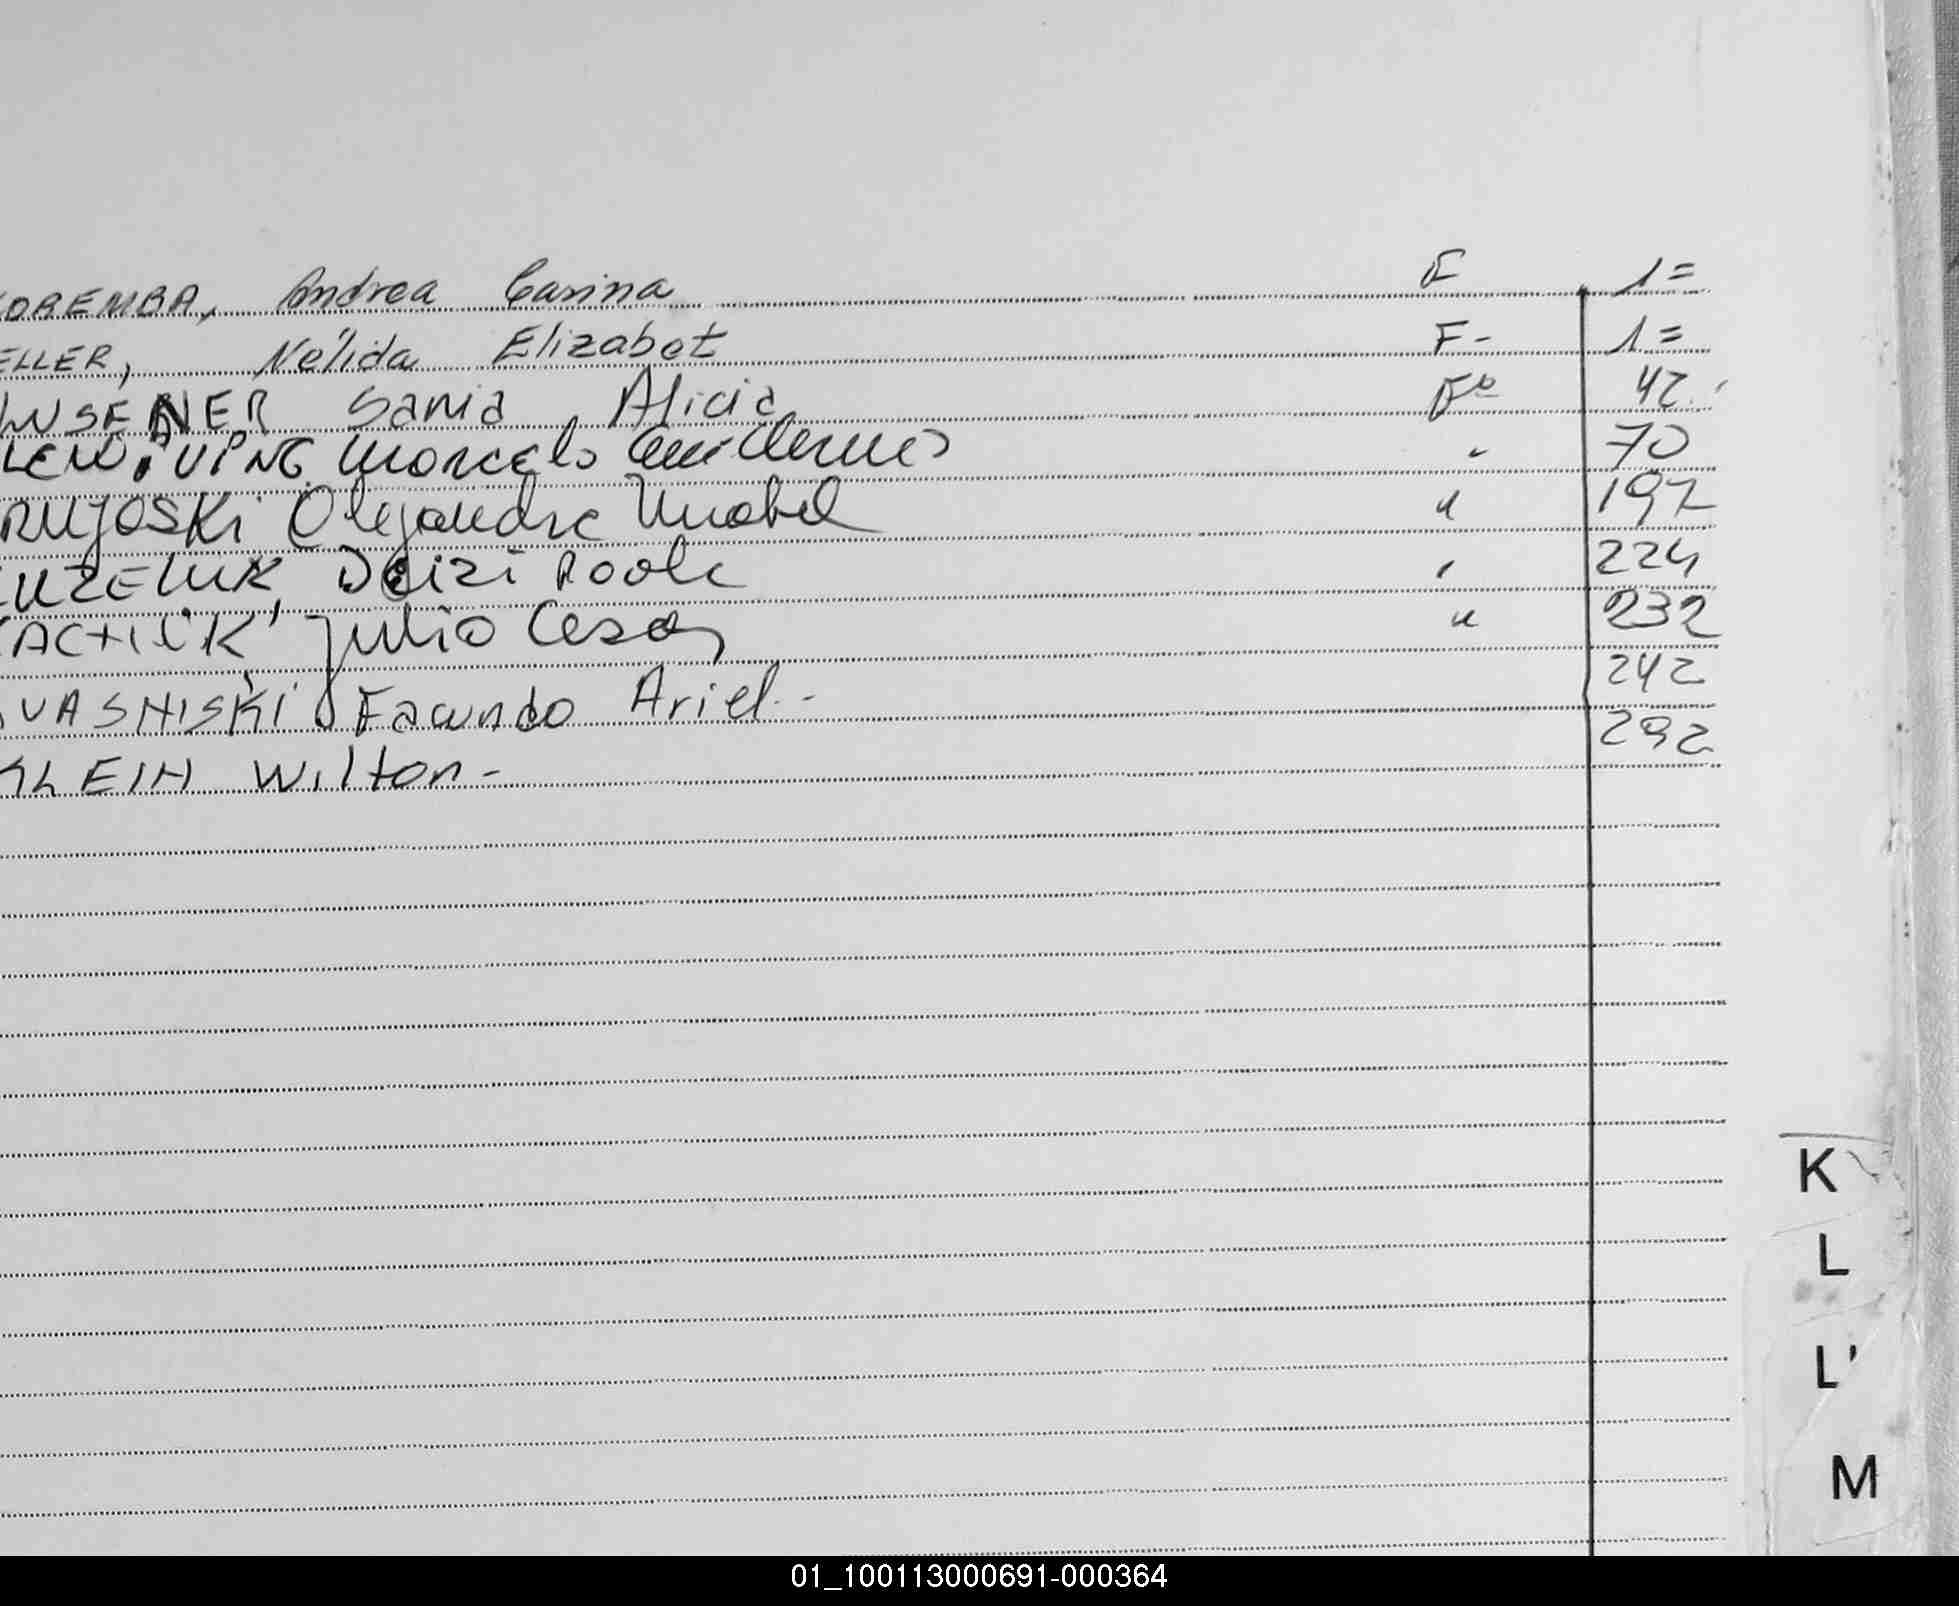 KOREMBA, Andrea Carina F 1=
ELLER, Nélida Elizabet F- 1=
Sania Alicia Fº 42.
Marcelo Guillermo " 70
RUJOSKI Alejandra Mabel " 197
Deizi " 224
KACHUK, Julio Cesar " 232
Facundo Ariel.- 242
KLEIN Wilton- 292
K
L
L'
M
01_100113000691-000364